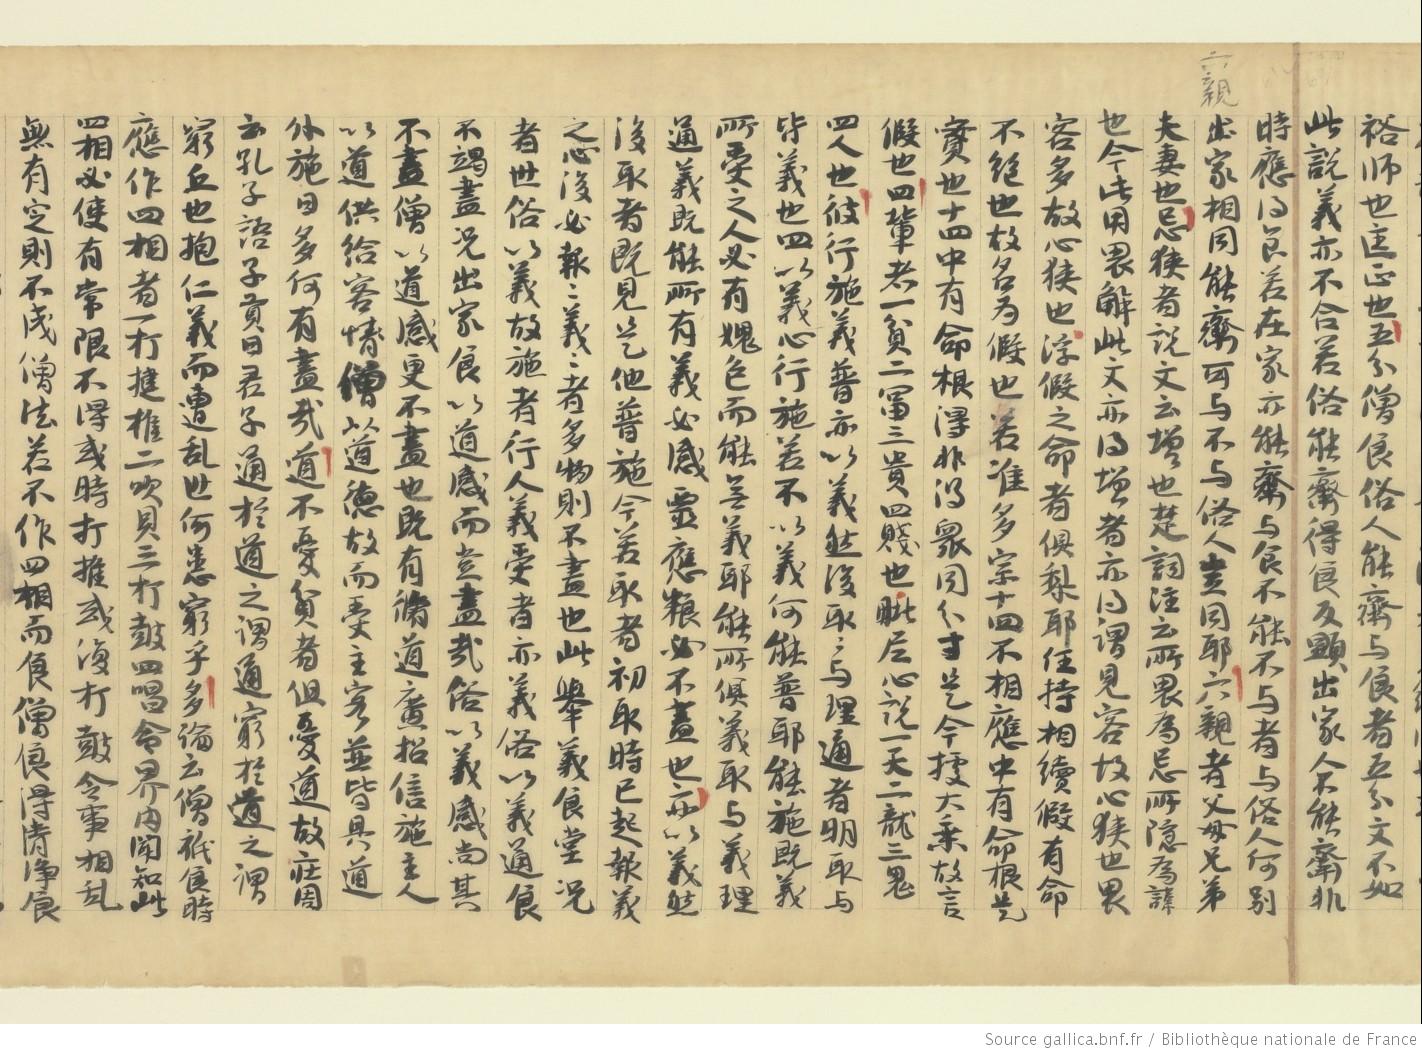 六親
裕師也匡正也五分僧食俗人能齋与食者五分文不如
此說義亦不合若俗能齋得食反顯出家人不能齋非
時應得食若在家亦能齋与食不能不与者与俗人何別
出家相同能齋可与不与俗人豈同耶六親者父母兄弟
夫妻也忌狹者說文云增也楚詞注云所畏為忌所隱為諱
也今此用畏解此文亦得增者亦得謂見客故心狹也畏
客多故心狹也浮假之命者俱梨耶任持相續假有命
不絕也故名為假也若准多宗十四不相應中有命根是
實也十四中有命根得非得眾同分等是今據大乘故言
假也四輩者一貧二富三貴四賤也毗尼心說一天二龍三鬼
四人也彼行施義普亦以義然後取之与理通者明取与
皆義也四以義心行施若不以義何能普耶能施既義
所受之人必有媿色而能無義耶能所俱義取与義理
通義既能所有義必感靈應粮必不盡也亦以義然
後取者既見是他普施今若取者初取時已起報義
之心後必報之義之者多物則不盡也此舉義食堂況
者世俗以義故施者行人義受者亦義俗以義通食
不竭盡況出家食以道感而豈盡哉俗以義感尚其
不盡僧以道感更不盡也既有備道廣招信施主人
以道供給客情僧以道德故而受主客並皆具道
外施日多何有盡哉道不憂貧者但憂道故莊周
云孔子語子貢曰君子通於道之謂通窮於道之謂
窮丘也抱仁義而遭乱世何患窮乎多論云僧祇食時
應作四相者一打揵椎二吹貝三打鼓四唱令界內聞知此
四相必使有常限不得或時打椎或復打鼓令事相乱
無有定則不成僧法若不作四相而食僧食得清淨食
Source gallica.bnf.fr / Bibliothèque nationale de France